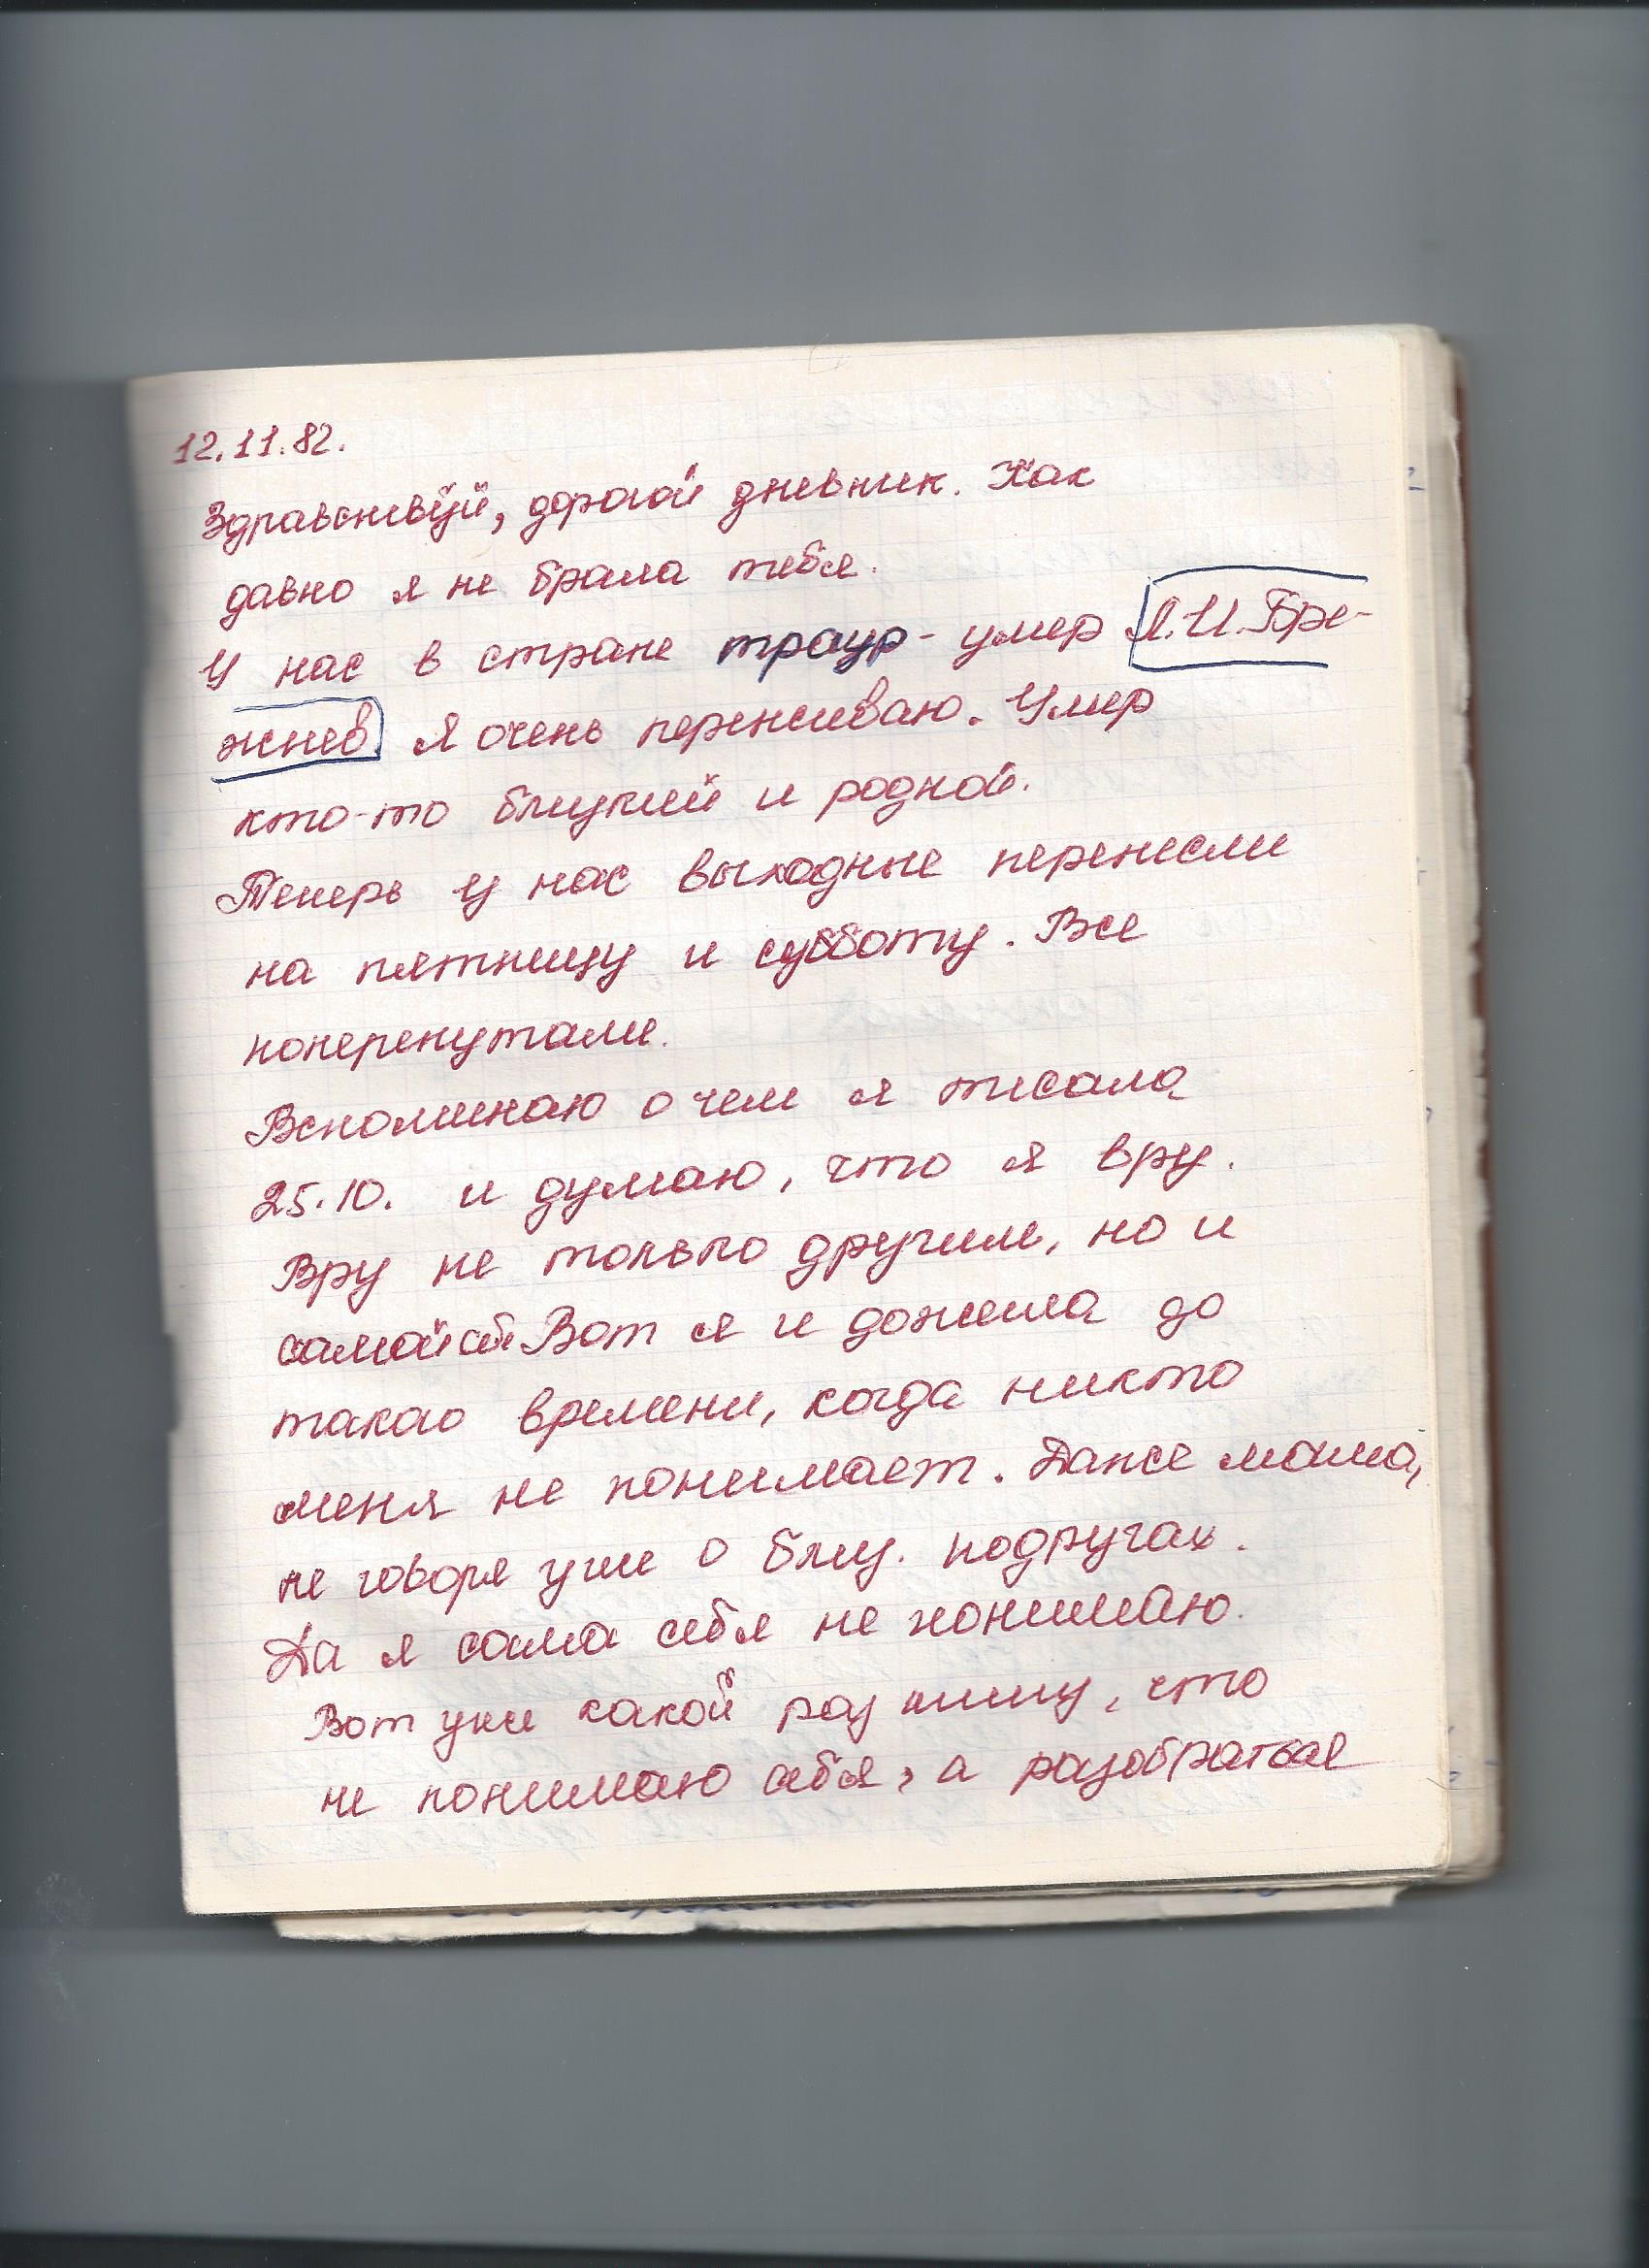 12.11.82.
Здравствуй, дорогой дневник. Как
давно я не брала тебя.
У нас в стране траур - умер Л.И.Бре-
жнев Я очень переживаю. Умер
кто-то близкий и родной.
Теперь у нас выходные перенесли
на пятницу и субботу. Все
поперепутали.
Вспоминаю о чем я писала
25.10. и думаю, что я вру.
Вру не только другим, но и
самой себе Вот я и дожила до
такого времени, когда никто
меня не понимает. Даже мама,
не говоря уже о близ. подругах.
Да я сама себя не понимаю.
Вот уже какой раз пишу, что
не понимаю себя, а разобраться